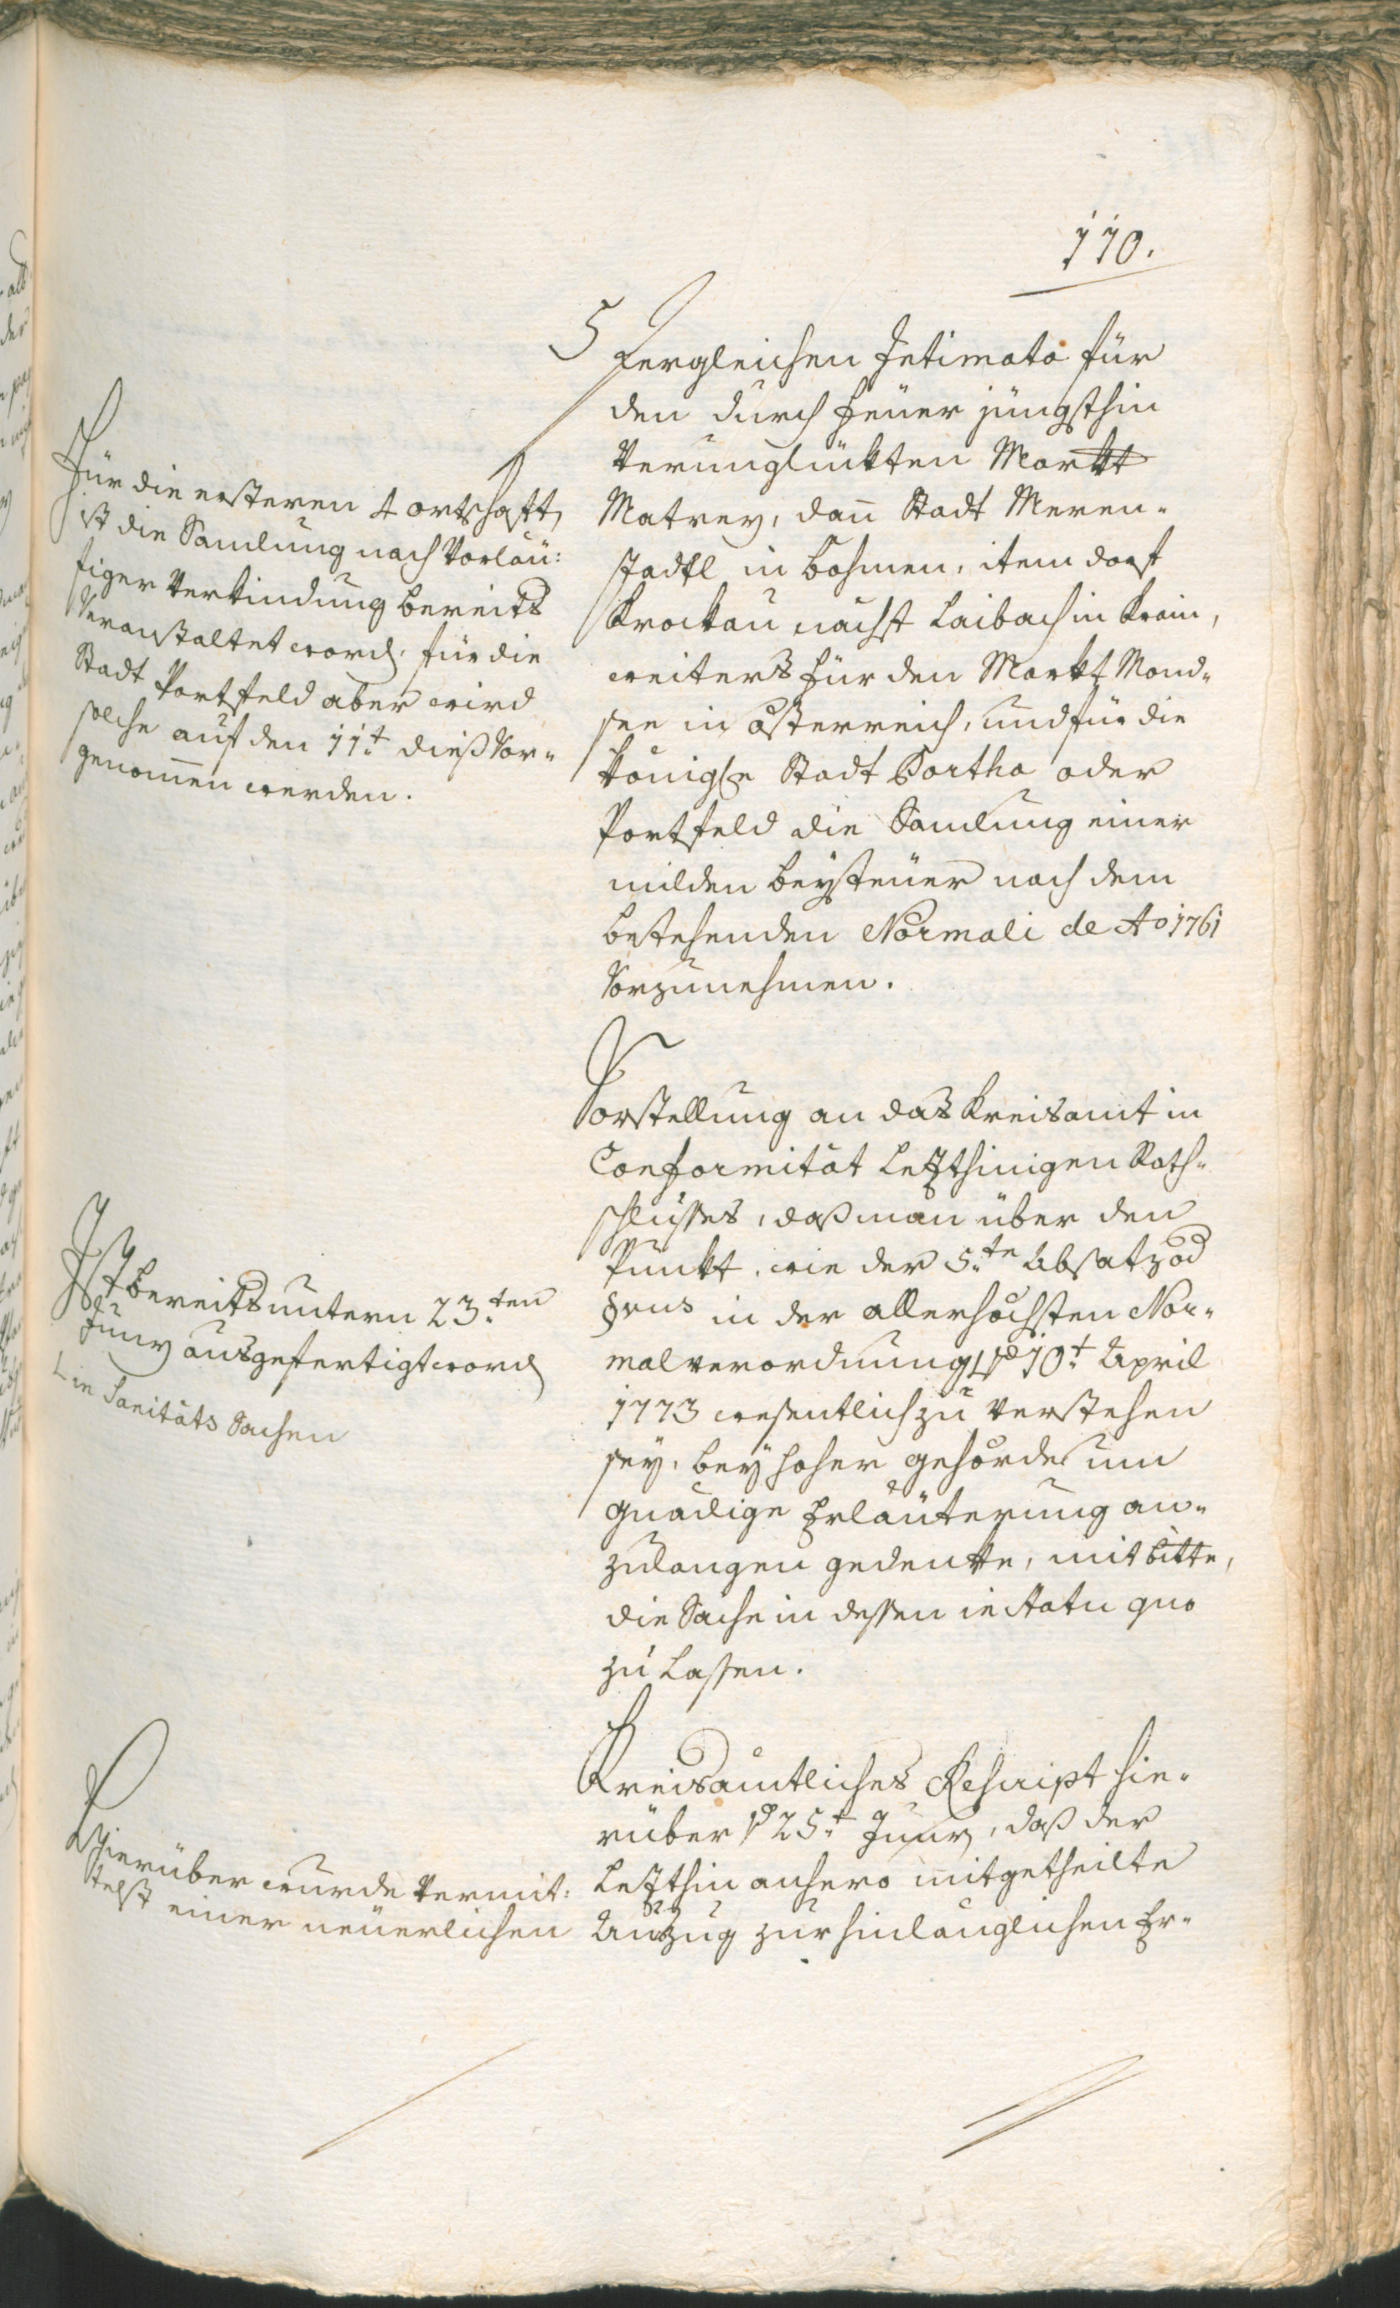 110.
5 dergleichen Intimata für
den durch Feuer jüngsthin
Verunglükten Markt
Matrey, dan̄ Stadt Meren-
stadtl in Böhmen, item dorf
Krockau nächst Laibach in Krain,
weiters für den Markt Mond-
see in österreich, und für die
königle Stadt Bartha oder
Partfeld die Samlung einer
milden beysteuer nach dem
bestehenden Normali de Ao 1761
Vorzunehmen.
Für die ersteren 4 ortschaft
ist die Samlung nach Vorläu:
figer Verkündung bereits
Veranstaltet word. für die
Stadt Partfeld aber wird
solche auf den 11t dieß Vor-
genom̄en werden.
Vorstellung an das Kreisamt in
Conformität letzthinigen Rath-
schlußes, daß man über den
Punkt, wie der 5.te Absatz od
§vus in der allerhöchsten Nor-
malverordnung └ vo 10t April
1773 wesentlich zu verstehen
sey, bey hoher gehörde um
gnädige Erläuterung an-
zulangen gedenke, mit bitte,
die Sache in dessen in statu quo
zu lassen.
Ist bereits untern 23.ten
Juny ausgefertigt word
└ in Sanitäts Sachen
Kreisämtliches Rescript hie-
rüber vo 25t Juny, daß der
letzthin anhero mitgetheilte
Auszug zur hinlänglichen Er-
Hierüber wurde Vermit:
telst einer neuerlichen